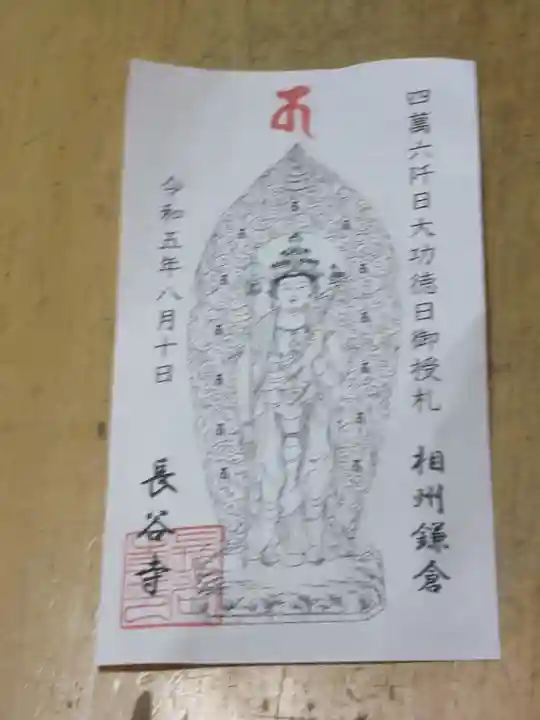 四萬六阡日大功徳日御授札
相州鎌倉
令和五年八月十日
長谷寺